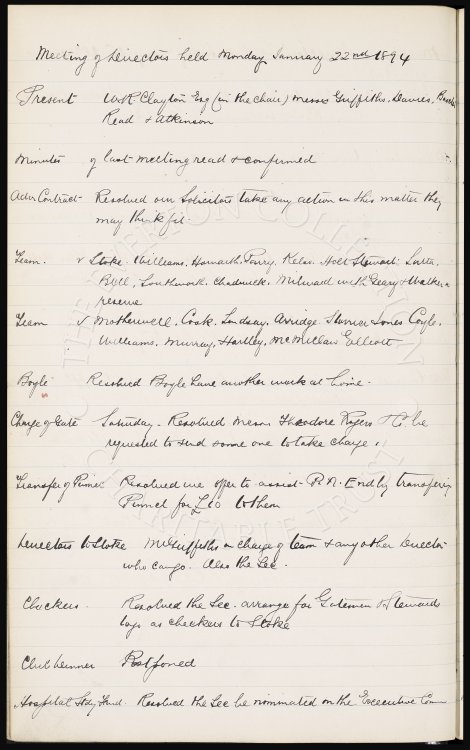 Meeting of Directors held Monday January 22nd 1894
Present W R Clayton Esq (in the chair) Messrs Griffiths, Davies,
Read & Atkinson
Minutes of last meeting read & confirmed
Adv Contract Resolved our Solicitors take any action in this matter they
may think fit
Team. v Stoke. Williams, Howarth, Parry, Kelso. Holt Stewart. Latta.
Bell, Southworth, Chadwick, Milward with Geary & Walker in
reserve
Team v Motherwell. Cook, Lindsay, Arridge. Storrier Jones Coyle.
Williams. Murray, Hartley, McMillan Elliott
Boyle Resolved Boyle have another week at home.
Charge of Gate Saturday - Resolved Messrs Theodore Rogers & Co be
requested to send some one to take charge.
Transfer of Pinnel Resolved we offer to assist B. N. End by transfering
Pinnel for £10 to them
Directors to Stoke Mr Griffiths in charge of team & any other Director
who can go. Also the Sec.
Checkers. Resolved the Sec. arrange for Gatemen & Stewards
to go as checkers to Stoke
Club dinner Postponed
Hospital Fund. Resolved the Sec be nominated on the Excecutive Com
THE EVERTON COLLECTION
CHARITABLE TRUST